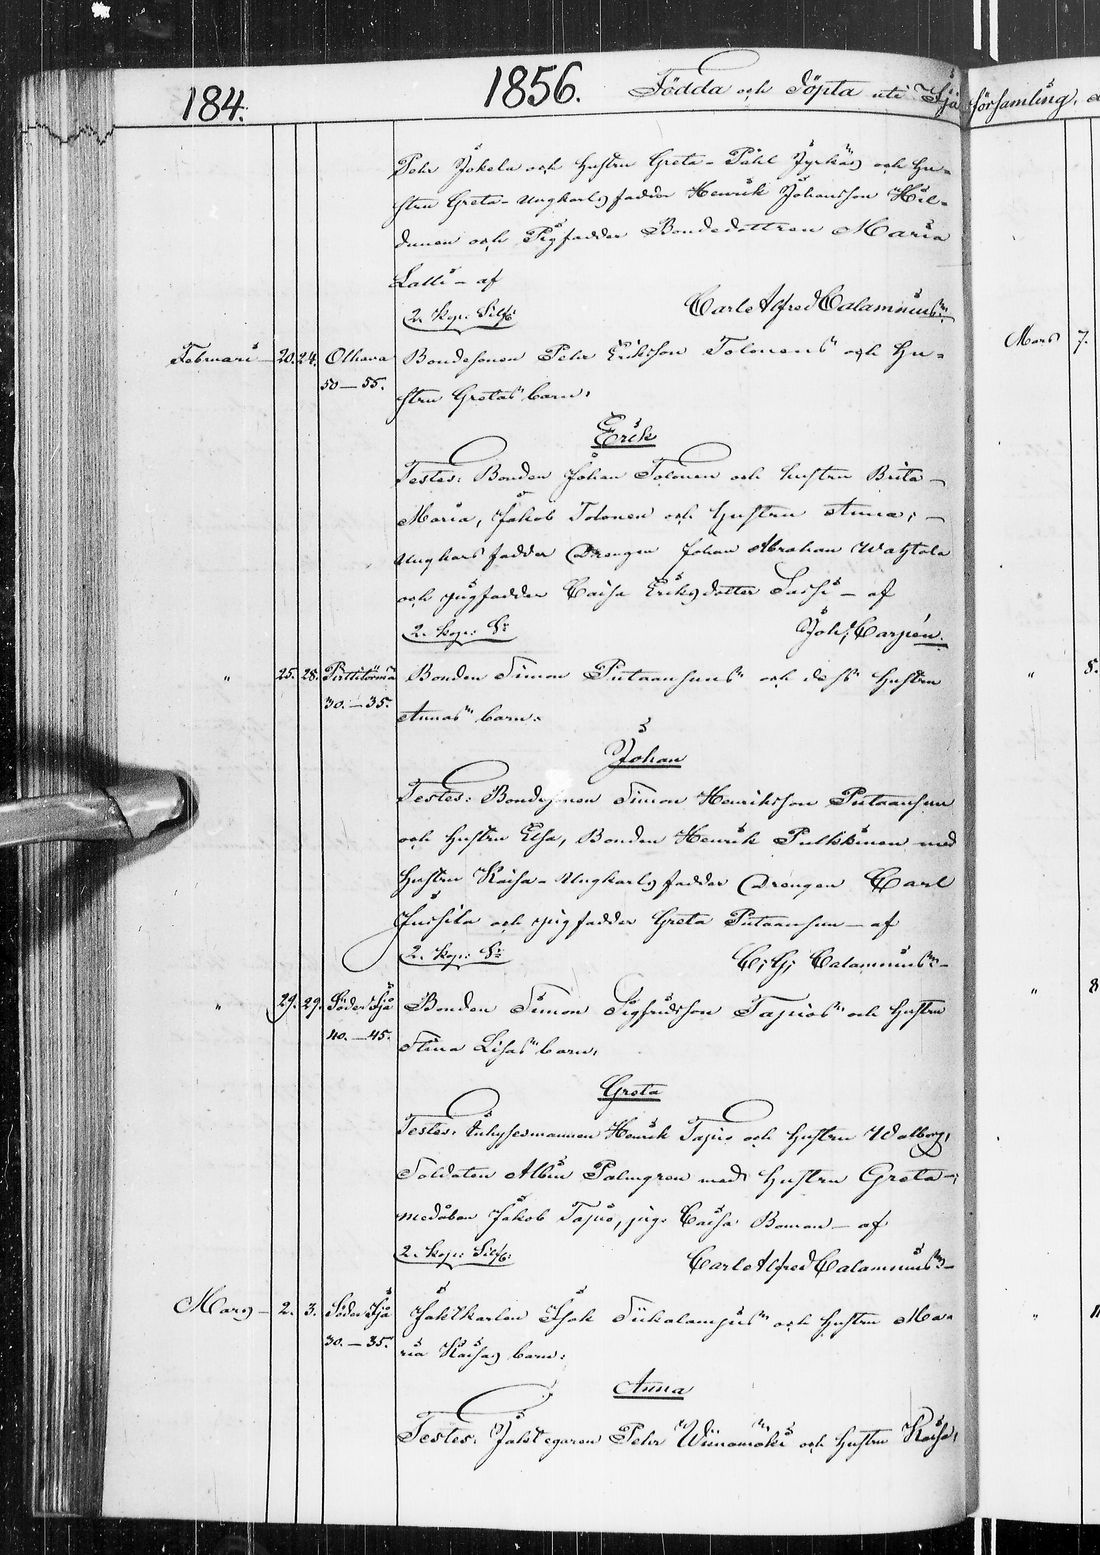 184. 1856. Födda och Döpta uti Ijå församling.
Pehr Jokela och hustru Greta - Påhl Jyrkäs och hu-
stru Greta - Ungkarlsfadder Henrik Johansson Hil-
dunen och Pigfadder Bondedottren Maria
Lalli - af
2. kop: Silf: Carl Alfred Calamnius
Februari 20. 24. Olhava Bondesonen Pehr Eriksson Tolonens och hu- Mars 7.
50-55. stru Gretas barn.
Erik
Testes: Bonden Johan Tolonen och hustru Brita
Maria, Jakob Tolonen och hustru Anna;
Ungkarlsfadder Drengen Johan Abraham
och pigfadder Caisa Eriksdotter - af
2. kop: Sr Joh: Carpén.
" 25. 28. Bonden Simon Putaansuus och dess hustru "
30.-35. Annas barn.
Johan
Testes: Bondesonen Simon Henriksson Putaansuu
och hustru Elsa, Bonden Henrik Pulkkinen med
hustru Kaisa - Ungkarlsfadder Drengen Carl
Jussila och pigfadder Greta Putaansuu - af
2. kop: Sr C. G. Calamnius
" 29. 29. Söder Ijå Bonden Simon Sigfridsson Tapios och hustru " 8
40.-45. Stina Lisas barn.
Greta
Testes: Inhysesmannen Henrik Tapio och hustru Walborg,
Soldaten Albin Palmgren med hustru Greta;
Jakob Tapio, pig: Caisa - af
2. kop: Silf: Carl Alfred Calamnius
Mars 2. 3. Söder Ijå Jaktkarlen Isak och hustru Ma- " 11
30.-35. ria Kaisas barn:
Anna
Testes: Jaktegaren Pehr Wiinamäki och hustru Kaisa,